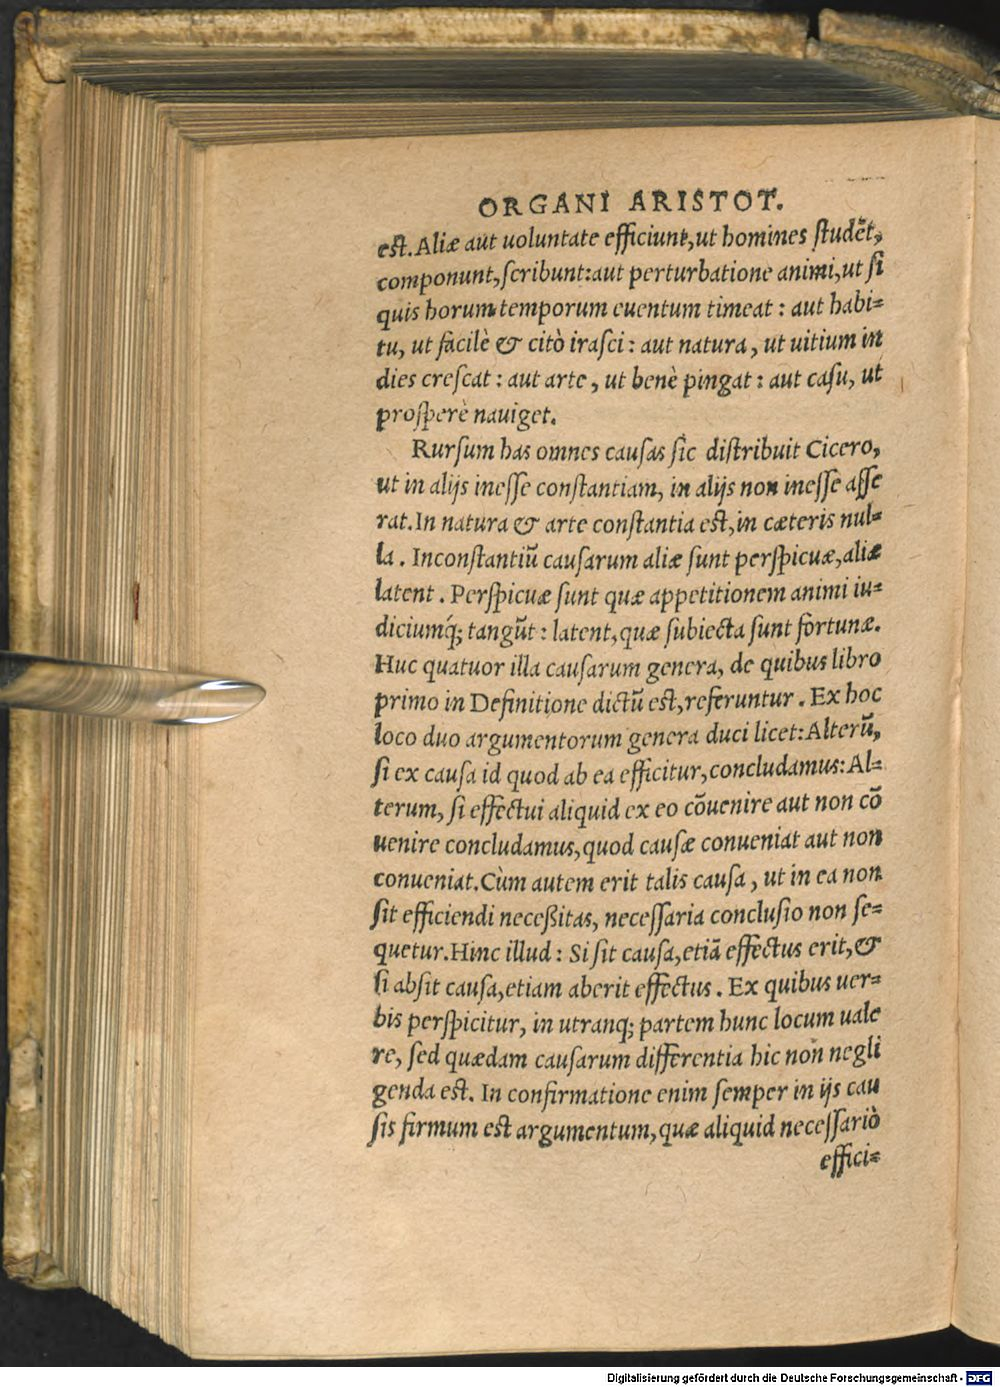 ORGANI ARISTOT.
eſt. Aliæ aut uoluntate efficiunt, ut homines ſtudẽt,
componunt, ſcribunt: aut perturbatione animi, ut ſi
quis horum temporum euentum timeat: aut habi=
tu, ut facilè & citò iraſci: aut natura, ut uitium in
dies creſcat: aut arte, ut benè pingat: aut caſu, ut
proſperè nauiget.
Rurſum has omnes cauſas ſic diſtribuit Cicero,
ut in alijs ineſſe conſtantiam, in alijs non ineſſe aſſe
rat. In natura & arte conſtantia eſt, in cæteris nul=
la. Inconſtantiũ cauſarum aliæ ſunt perſpicuæ, aliæ
latent. Perſpicuæ ſunt quæ appetitionem animi iu=
diciumq́; tangũt: latent, quæ ſubiecta ſunt fortunæ.
Huc quatuor illa cauſarum genera, de quibus libro
primo in Definitione dictũ eſt, referuntur. Ex hoc
loco duo argumentorum genera duci licet: Alterũ,
ſi ex cauſa id quod ab ea efficitur, concludamus: Al=
terum, ſi effectui aliquid ex eo cõuenire aut non cõ
uenire concludamus, quod cauſæ conueniat aut non
conueniat. Cùm autem erit talis cauſa, ut in ea non
ſit efficiendi neceßitas, neceſſaria concluſio non ſe=
quetur. Hinc illud: Si ſit cauſa, etiã effectus erit, &
ſi abſit cauſa, etiam aberit effectus. Ex quibus uer=
bis perſpicitur, in utranq; partem hunc locum uale
re, ſed quædam cauſarum differentia hic non negli
genda eſt. In confirmatione enim ſemper in ijs cau
ſis firmum eſt argumentum, quæ aliquid neceſſariò
effici=
Digitalisierung gefördert durch die Deutsche Forschungsgemeinschaft - DFG